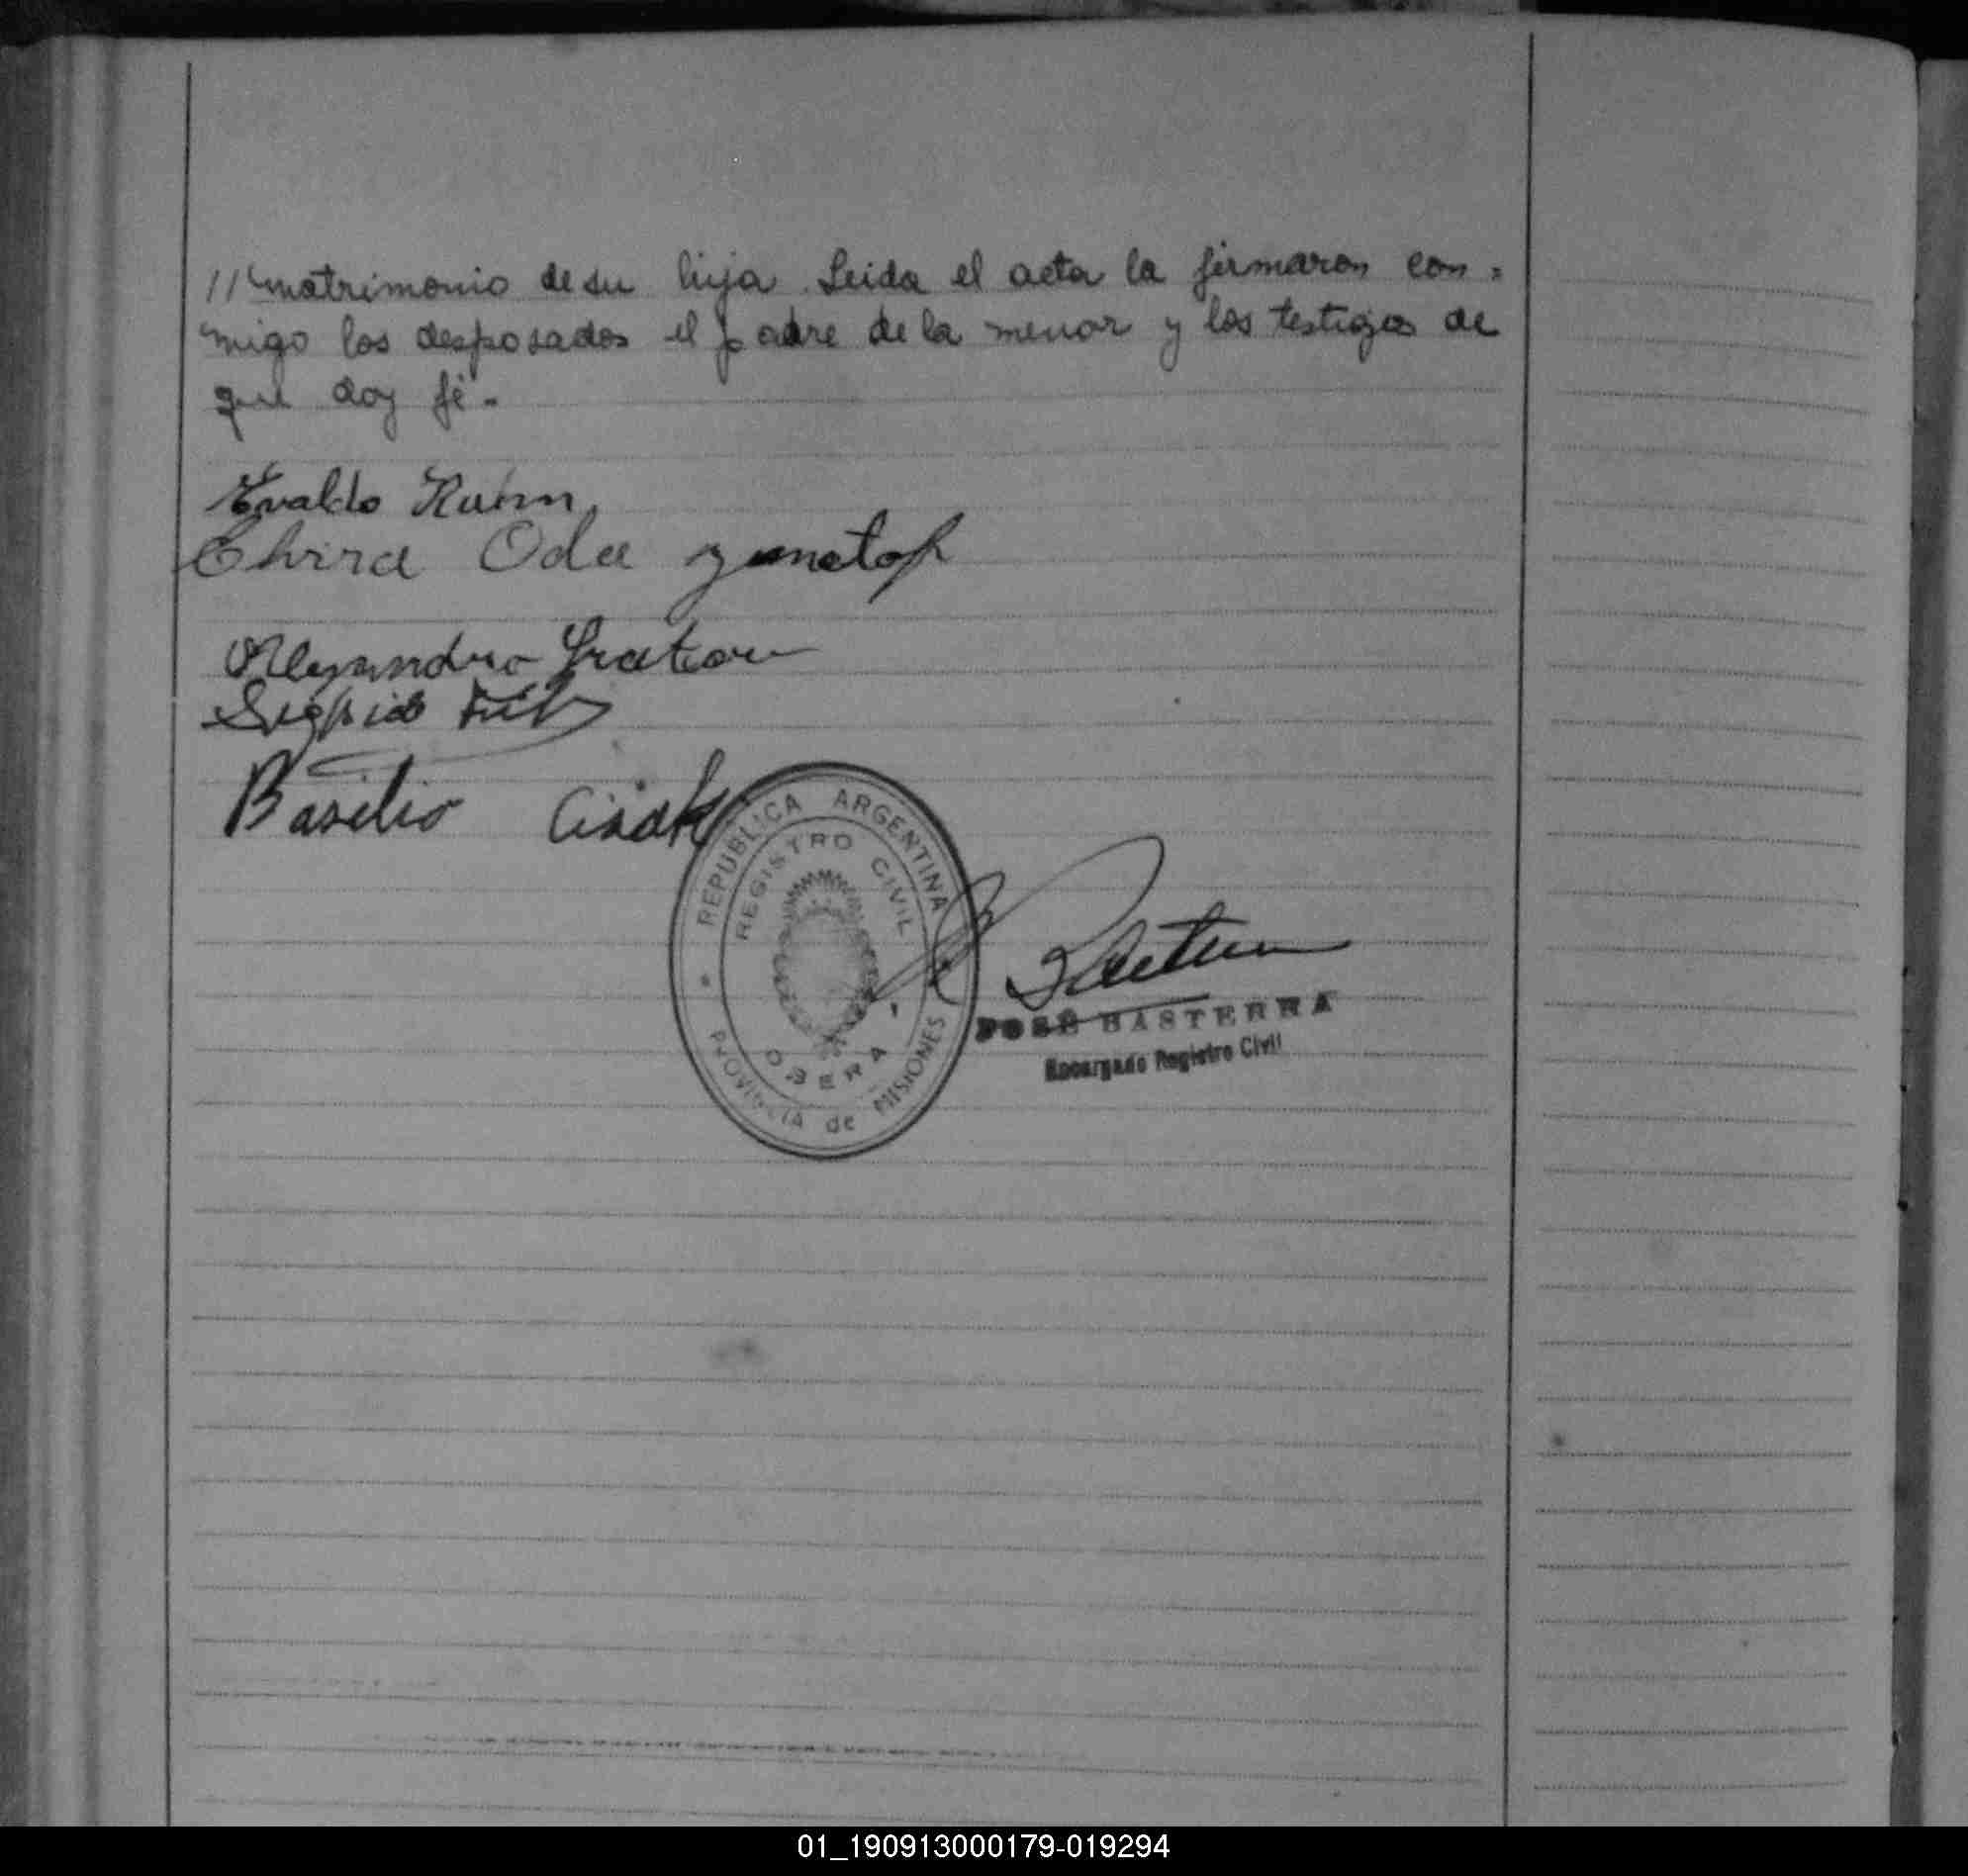 // matrimonio de su hija. Leida el acta la firmaron con=
migo los desposados el padre de la menor y los testigos de
que doy fé.-
Evaldo Kuhn
Elvira Oda
Alejandro
Basilio
REPUBLICA ARGENTINA
REGISTRO CIVIL
OBERA
PROVINCIA de MISIONES
JOSÉ BASTERRA
Encargado Registro Civil
01_190913000179-019294